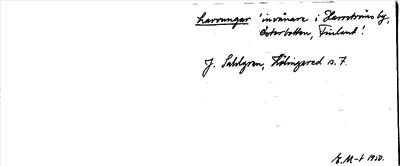 Larvungar 'invånare i Harrströms by,
Österbotten, Finland'.
J. Sahlgren, Hälsingered s. 7.
E. M-t 1950.